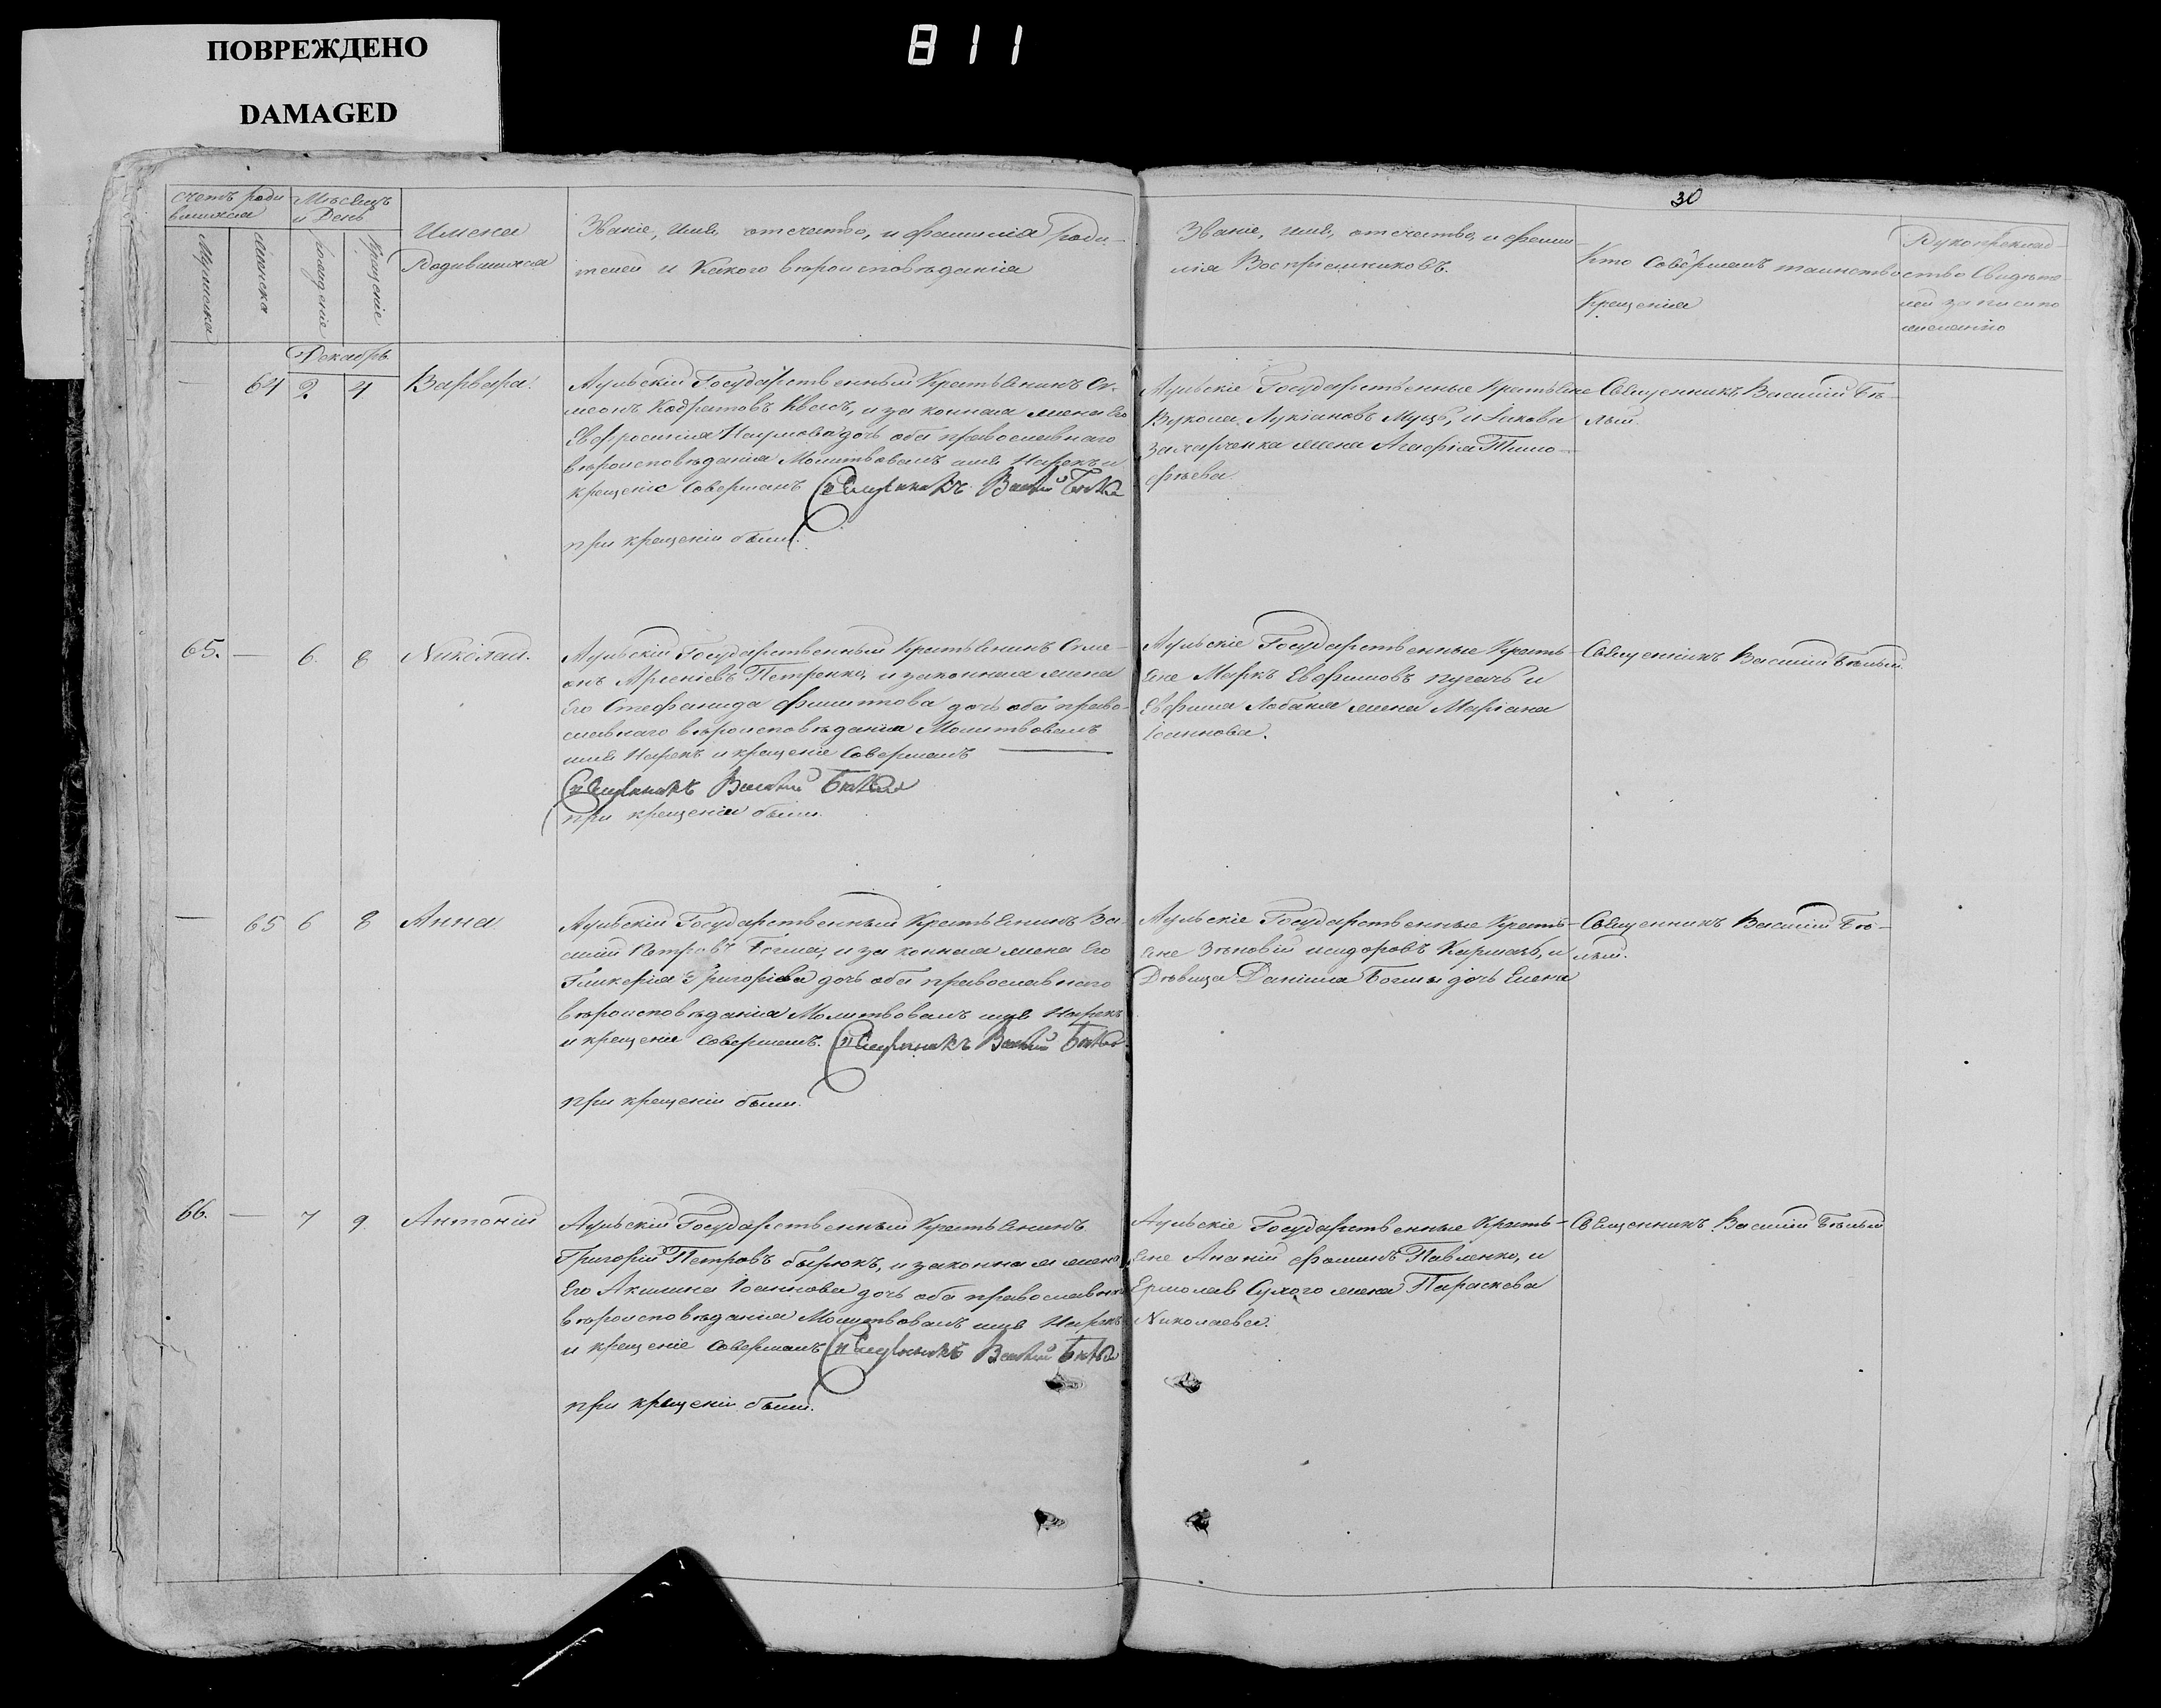 ПОВРЕЖДЕНО
DAMAGED
811
30
Счетъ роди
вшихся
Мѣсяцъ
и День
Мужеска
Женска
рождение
Крещеніе
Имена
Родившихся
Званіе, имя, отчество, и фамилія Роди-
телей и Какого вѣроисповѣданія
Званіе, имя, отчество, и фами-
лія Воспріемниковъ.
Кто Совершалъ таинство
Крещенія
Рукоприклад-
ство Свидѣте-
лей записи по
желанію
Декабрь
— 64 2 4 Варвара.
Государственный Крестьянинъ Си-
меонъ и законная жена Его
Евфросинія Наумова дочь оба православнаго
вѣроисповѣданія Молитвовалъ имя Нарекъ и
крещеніе Совершалъ Священникъ Василій
при крещеніи были.
Государственные Крестьяне
Вукола Лукіановъ и Іякова
жена Агафія Тимо-
фѣева.
Священникъ Василій Бѣ-
лый.
65. — 6. 8 Николай.
Государственный Крестьянинъ Симе-
онъ Арсеніевъ Петренко, и законная жена
Его Стефанида Филиппова дочь оба право-
славнаго вѣроисповѣданія Молитвовалъ
имя Нарекъ и крещеніе Совершалъ
Священникъ Василій
при крещеніи были.
Государственные Кресть-
яне Маркъ Евфимовъ Пугачь и
Евфима Лобаня жена Маріана
Іоаннова.
Священникъ Василій Бѣлый.
— 65 6 8 Анна
Государственный Крестьянинъ Ва-
силій Петровъ и законная жена Его
Гликерія Григоріева дочь оба православнаго
вѣроисповѣданія Молитвовалъ имя Нарекъ
и крещеніе Совершалъ. Священникъ Василій
при крещеніи были.
Государственные Кресть-
яне Зѣновій Исидоровъ и
Дѣвица Даніила дочь Елена
Священникъ Василій Бѣ-
лый.
66. — 7 9. Антоній
Государственный Крестьянинъ
Григорій Петровъ Бырюкъ, и законная жена
Его Акилина Іоаннова дочь оба православнаго
вѣроисповѣданія Молитвовалъ имя Нарекъ
и крещеніе Совершалъ Священникъ Василій
при крещеніи были.
Государственные Кресть-
яне Ананій Фоминъ Павленко, и
Ермолая Сухого жена Параскева
Николаева.
Священникъ Василій Бѣлый